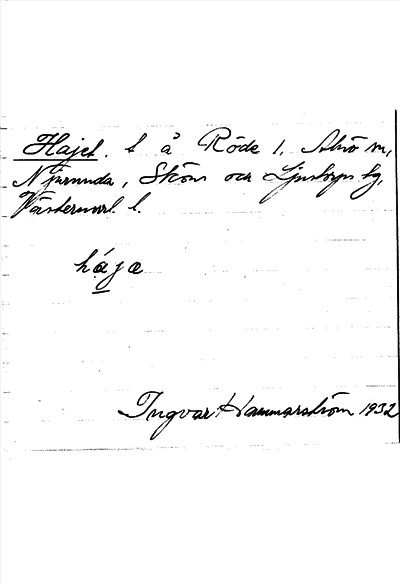 Hajet. t å Röde 1, Alnö sn,
Njurunda, Sköns och Ljustorps tg,
Västernorrl. l.
hája
Ingvar Hammarström 1932